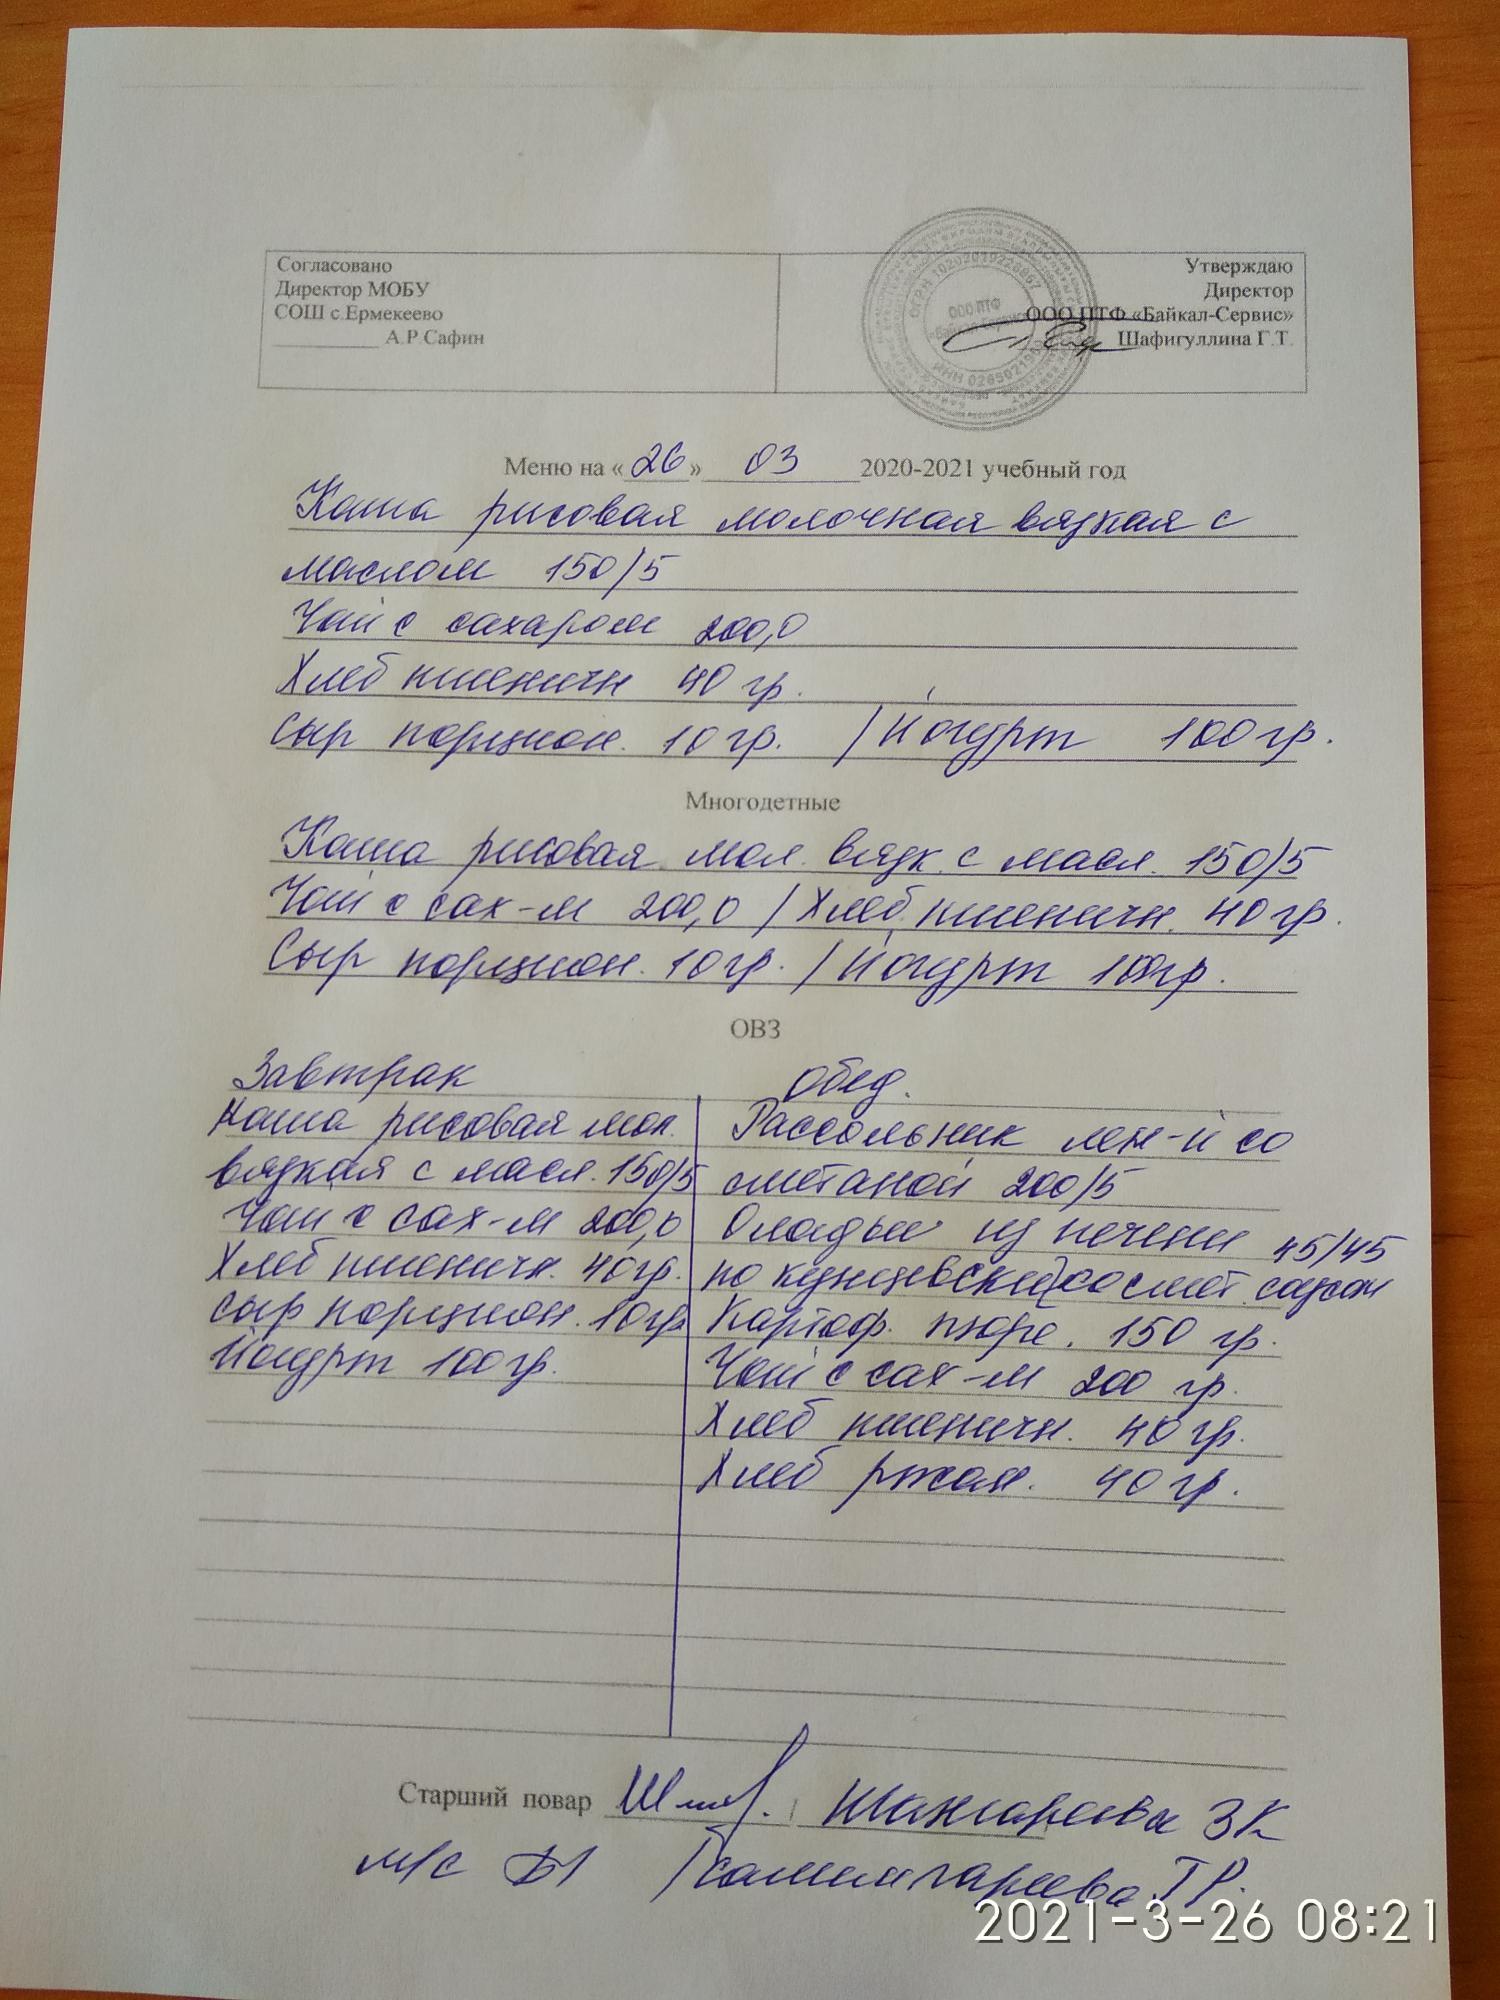 Согласовано
Директор МОБУ
СОШ с.Ермекеево
А.Р.Сафин
Утверждаю
Директор
ООО ПТФ «Байкал-Сервис»
Шафигуллина Г.Т.
ООО ПТФ
Меню на «26» 03 2020-2021 учебный год
Каша рисовая молочная вязкая с
маслом 150/5
Чай с сахаром 200,0
Хлеб пшеничн 40 гр.
Сыр порцион. 10 гр. / Йогурт 100 гр.
Многодетные
Каша рисовая мол. вязк. с масл. 150/5
Чай с сах-м 200,0 / Хлеб пшеничн. 40 гр.
Сыр порцион. 10 гр. / Йогурт 100гр.
ОВЗ
Завтрак
Каша рисовая мол.
вязкая с масл. 150/5
Чай с сах-м 200,0
Хлеб пшеничн. 40гр.
Сыр порцион. 10гр
Йогурт 100 гр.
Обед.
Рассольник лен-й со
сметаной 200/5
Оладьи из печени 45/45
по кунцевски со смет. соусом
Картоф. пюре. 150 гр.
Чай с сах-м 200 гр.
Хлеб пшеничн. 40 гр.
Хлеб ржан. 40 гр.
Старший повар Шангареева ЗК
м/с Галимгареева ГР.
2021-3-26 08:21